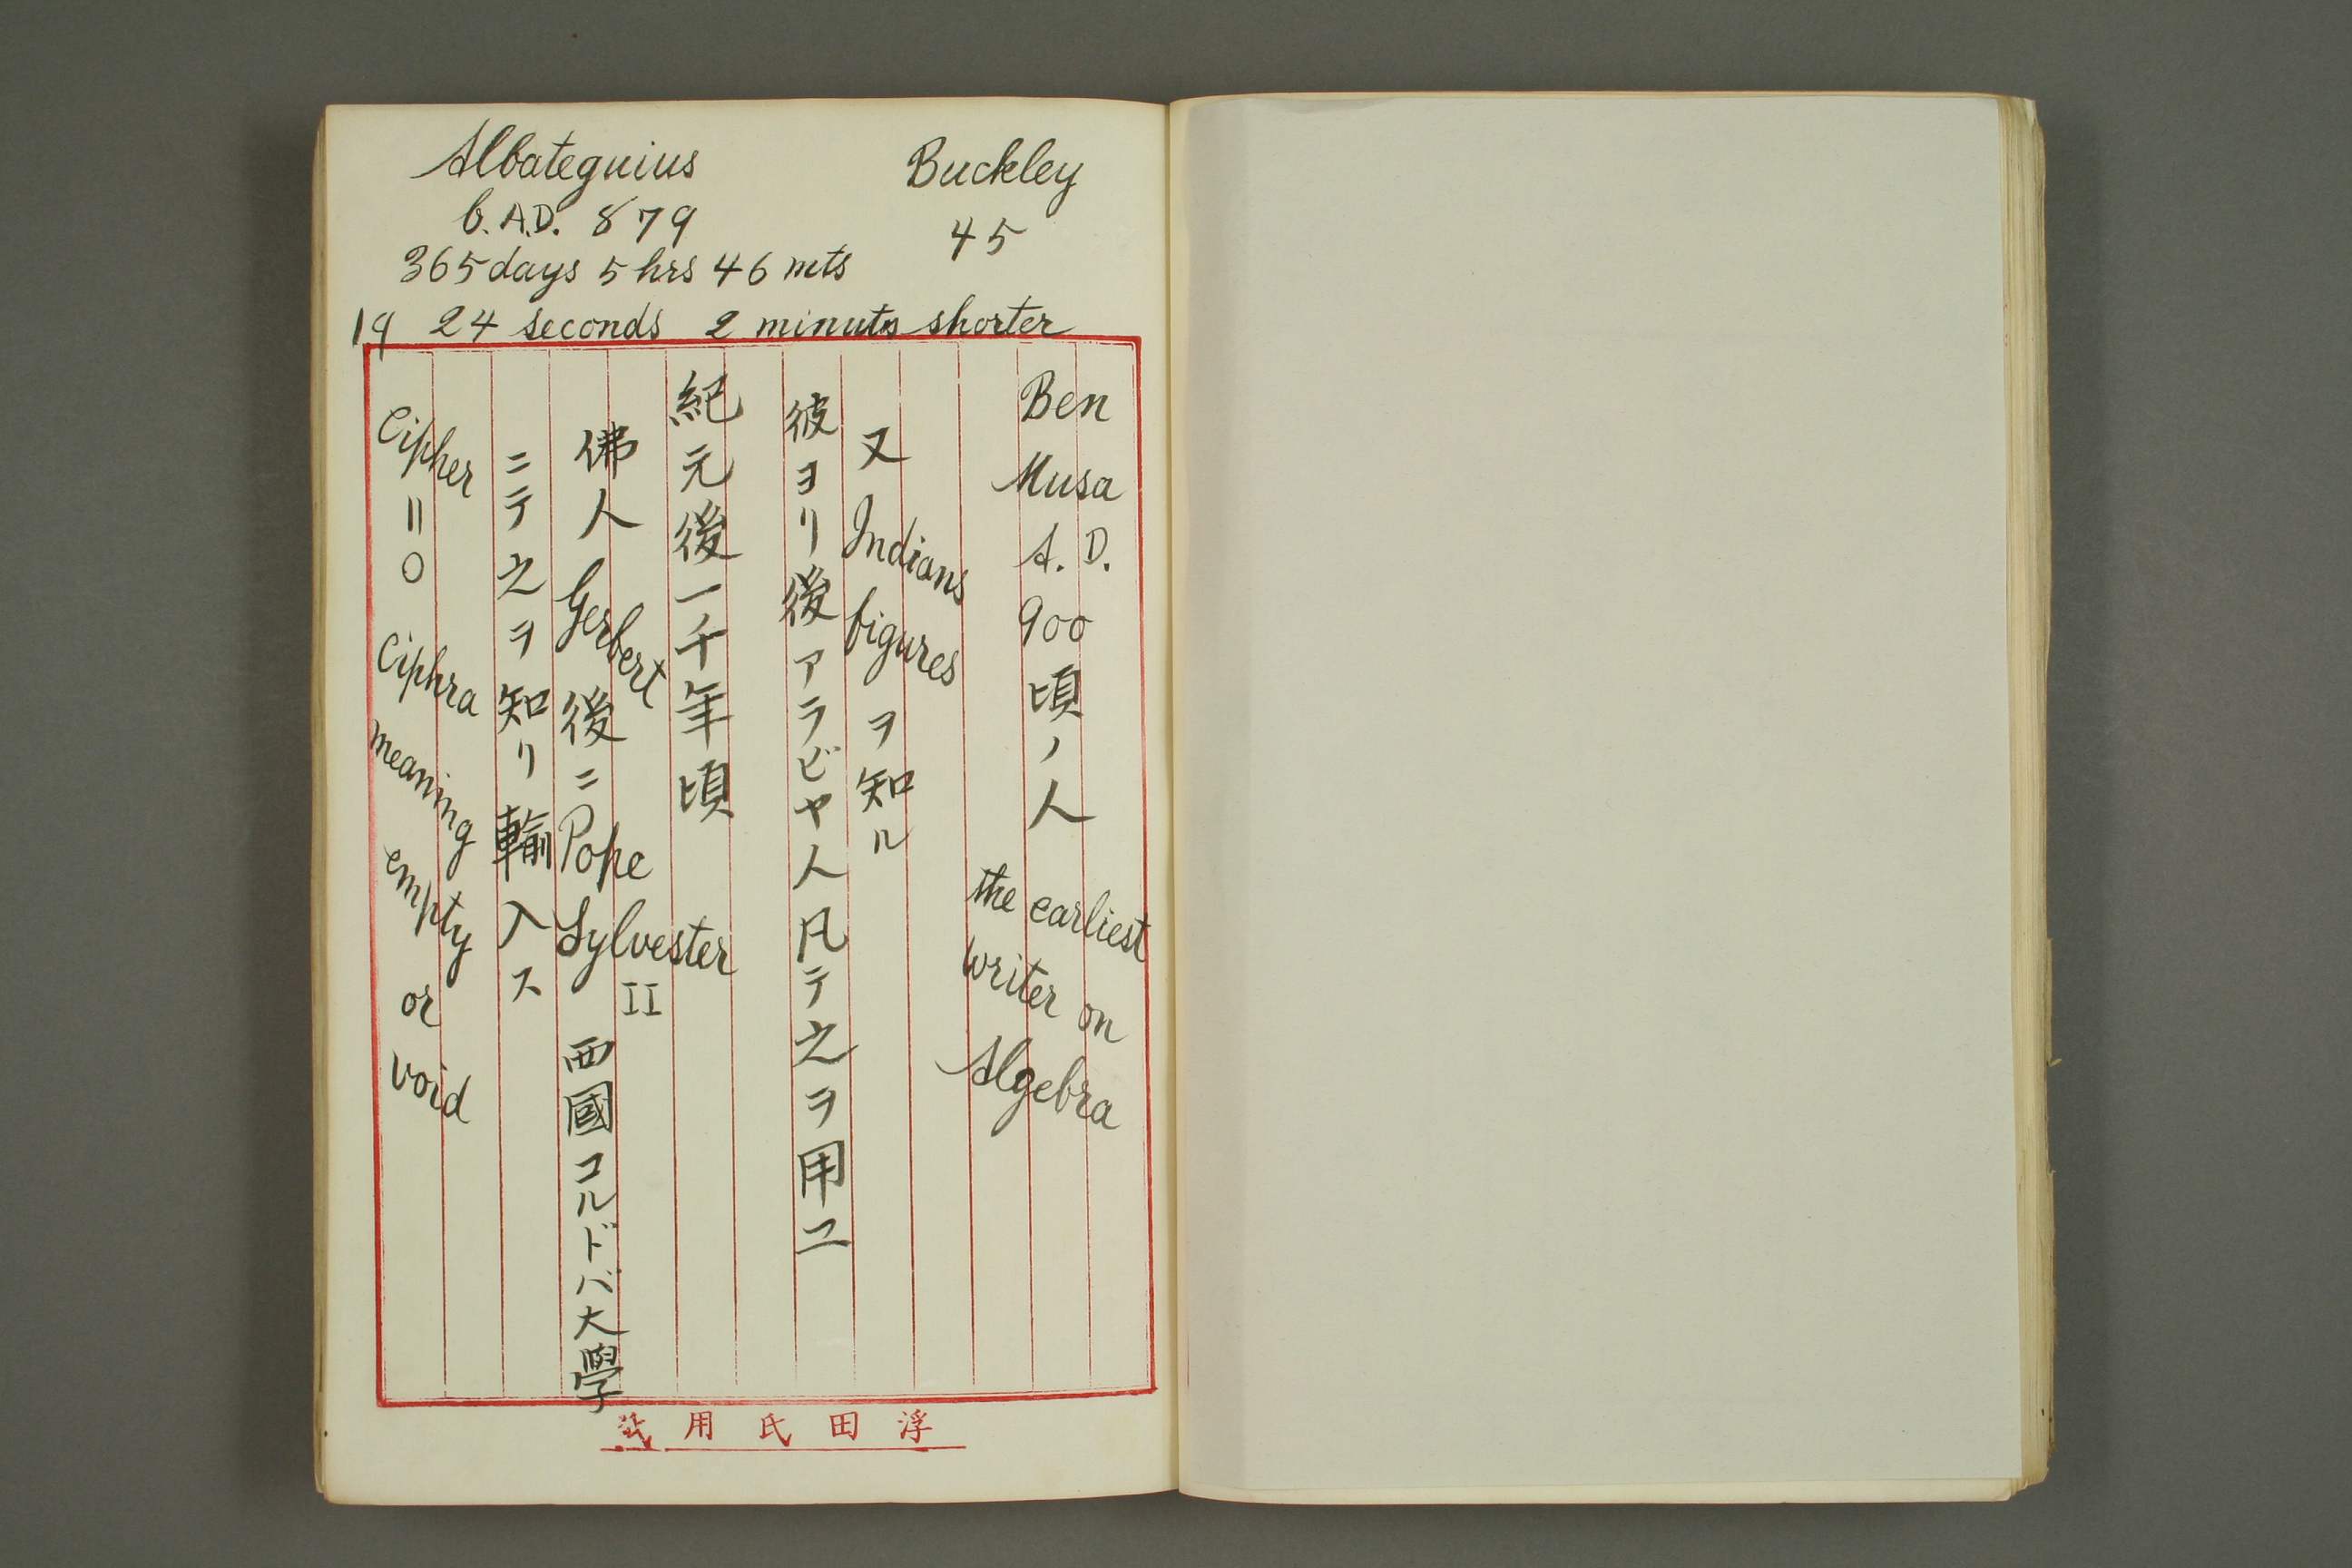 Albateguius
b. A.D. 879
365 days 5 hrs 46 mts
19 24 seconds 2 minuts shorter
Buckley
45
Ben Musa A. D. 900 頃ノ人 the earliest writer on Algebra
又 Indians figures ヲ知ル
彼ヨリ後アラビヤ人凡テ之ヲ用ユ
紀元後一千年頃
佛人 Gerbert 後ニ Pope Sylvester II 西國コルドバ大學
ニテ之ヲ知リ輸入ス
Cipher = 0 Ciphra meaning empty or void
浮田氏用